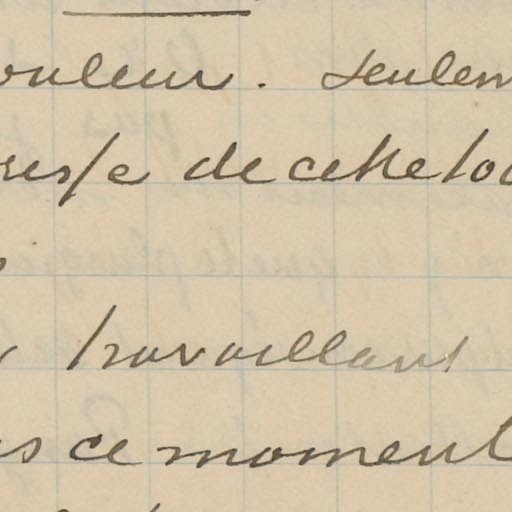 ouleur. Seulem
de cette to
travaillant
s ce moment